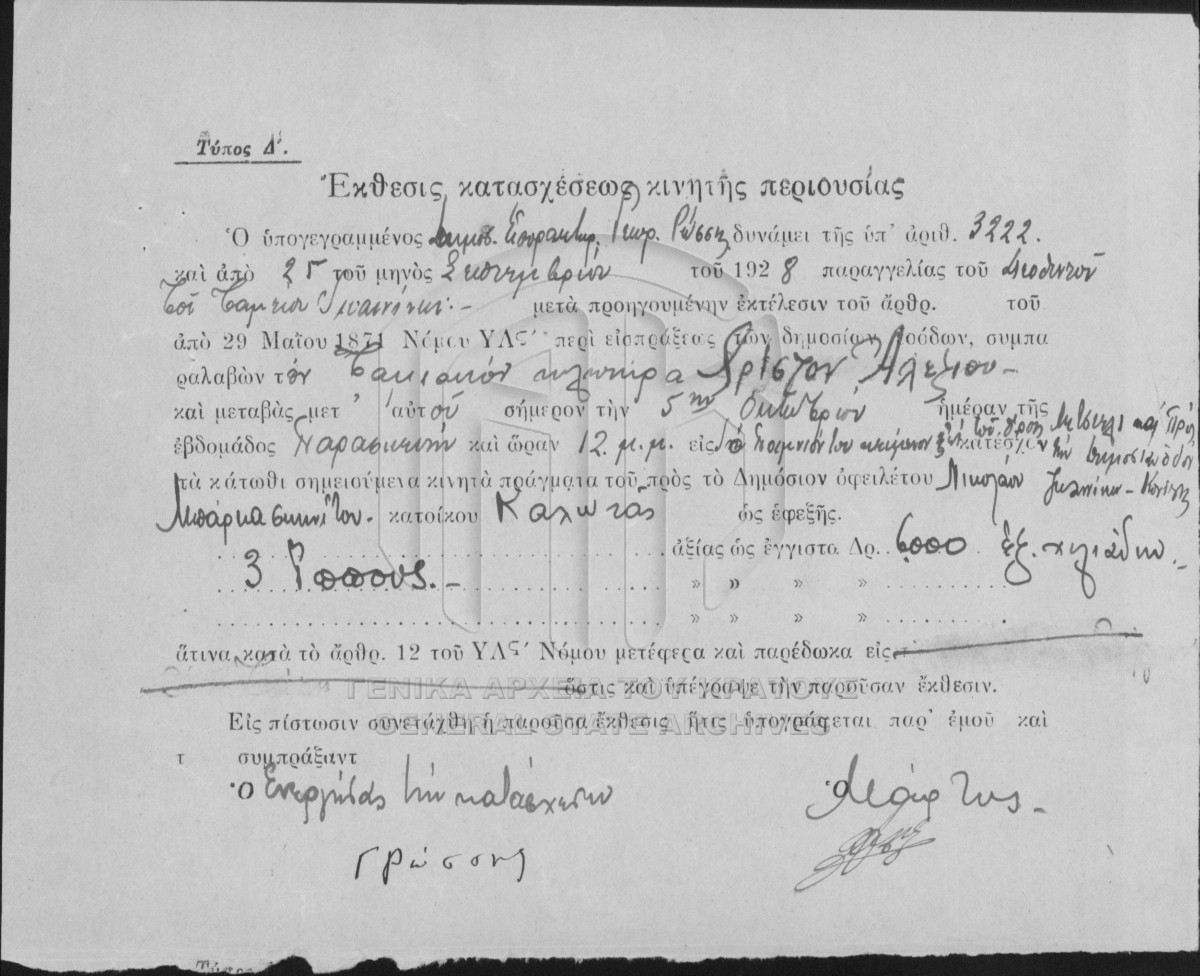 Τύπος Δ΄.
Ἔκθεσις κατασχέσεως κινητῆς περιουσίας
Ὁ ὑπογεγραμμένος Δημοσ. Εἰσπράκτωρ, Γεωρ. Ρώσσης δυνάμει τῆς ὑπ' ἀριθ. 3222.
καὶ ἀπὸ 25 τοῦ μηνὸς Σεπτεμβρίου τοῦ 1928 παραγγελίας τοῦ Διευθυντοῦ
τοῦ Ταμείου μετὰ προηγουμένην ἐκτέλεσιν τοῦ ἄρθρ. τοῦ
ἀπὸ 29 Μαΐου 1871 Νόμου ΥΛϚ΄ περὶ εἰσπράξεως τῶν δημοσίων προόδων, συμπα
ραλαβὼν τόν κλητῆρα Χρίστον Ἀλεξίου –
καὶ μεταβὰς μετ' αὐτοῦ σήμερον τὴν 5ην Ὀκτωβρίου ἡμέραν τῆς
ἑβδομάδος Παρασκευήν καὶ ὥραν 12 μ.μ. εἰς τὸ κατέσχον
τὰ κάτωθι σημειούμενα κινητὰ πράγματα τοῦ πρὸς τὸ Δημόσιον ὀφειλέτου Νικολάου
κατοίκου Καλωτᾶς ὡς ἐφεξῆς.
ἀξίας ὡς ἔγγιστα Δρ. 6000 ἓξ χιλιάδων –
3 Ἵππους. – » » » »
» » » »
ἅτινα κατὰ τὸ ἄρθρ. 12 τοῦ ΥΛϚ΄ Νόμου μετέφερα καὶ παρέδωκα εἰς
ὅστις καὶ ὑπέγραψε τὴν παροῦσαν ἔκθεσιν.
ΓΕΝΙΚΑ ΑΡΧΕΙΑ ΤΟΥ ΚΡΑΤΟΥΣ
Εἰς πίστωσιν συνετάχθη ἡ παροῦσα ἔκθεσις ἥτις ὑπογράφεται παρ' ἐμοῦ καὶ
GENERAL STATE ARCHIVES
τ συμπράξαντ
Ὁ Ἐνεργήσας τὴν κατάσχεσιν Ὁ Μάρτυς –
Γ Ρώσσης
Τύπος